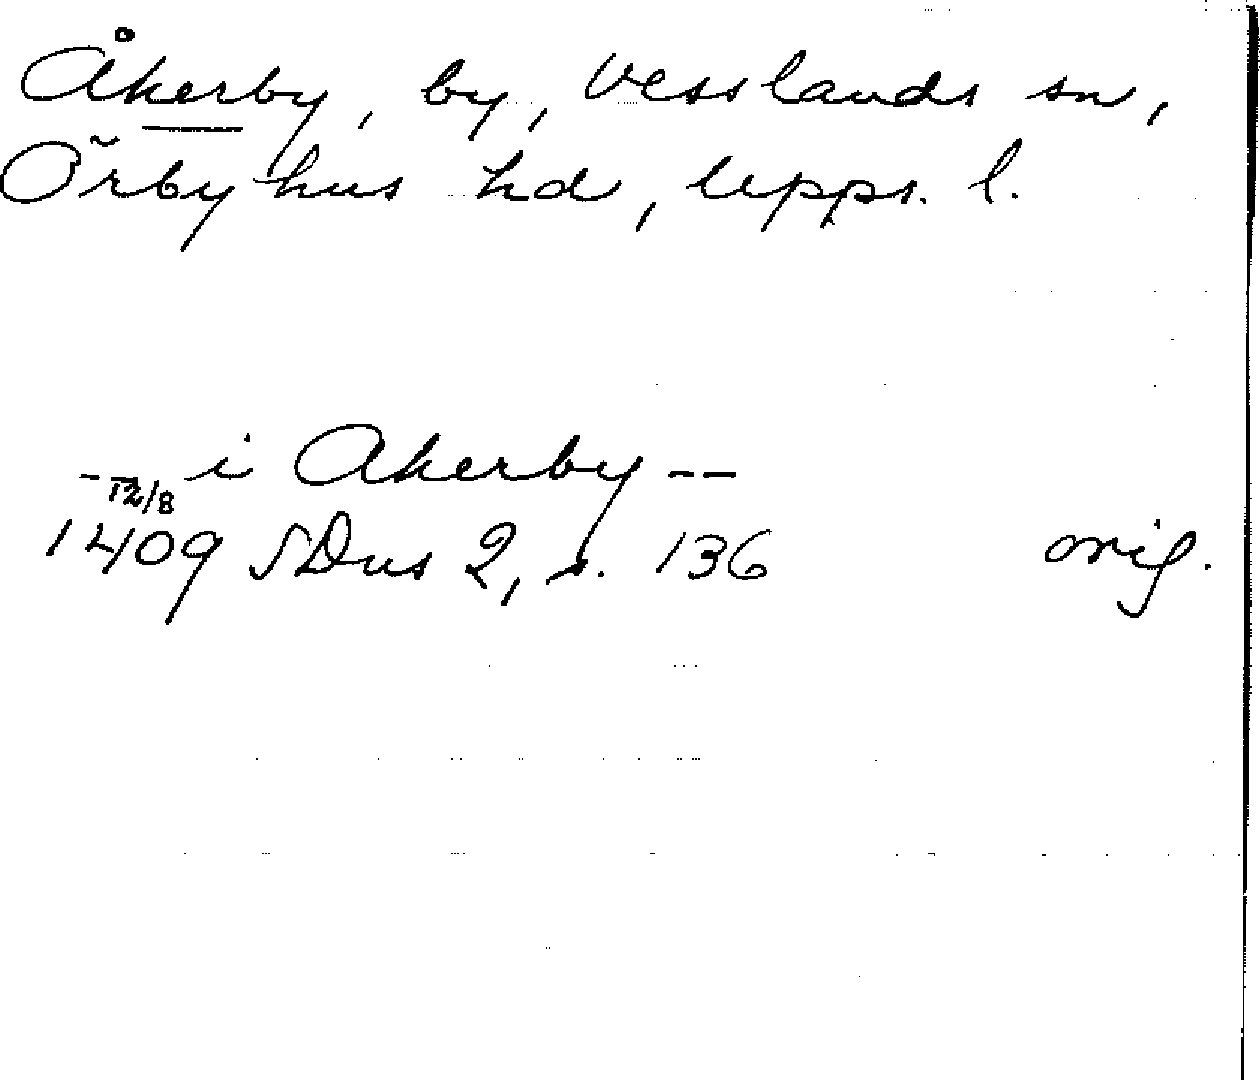 Åkerby, by, Vesslands sn,
Örbyhus hd, Upps. l.
-- i Akerby --
12/8
1409 SDns 2, s. 136 orig.